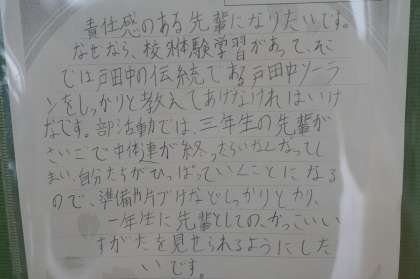 責任感のある先輩になりたいです。
なぜなら、校外体験学習があって、そこ
では戸田中の伝統である戸田中ソーラ
ンをしっかりと教えてあげなければいけ
なです。部活動では、三年生の先輩が
さいごで中体連が終ったらいなくなってし
まい、自分たちがひっぱっていくことになる
ので、準備や片づけなどしっかりとやり、
一年生に先輩としての、かっこいい
すがたを見せられるようにした
いです。